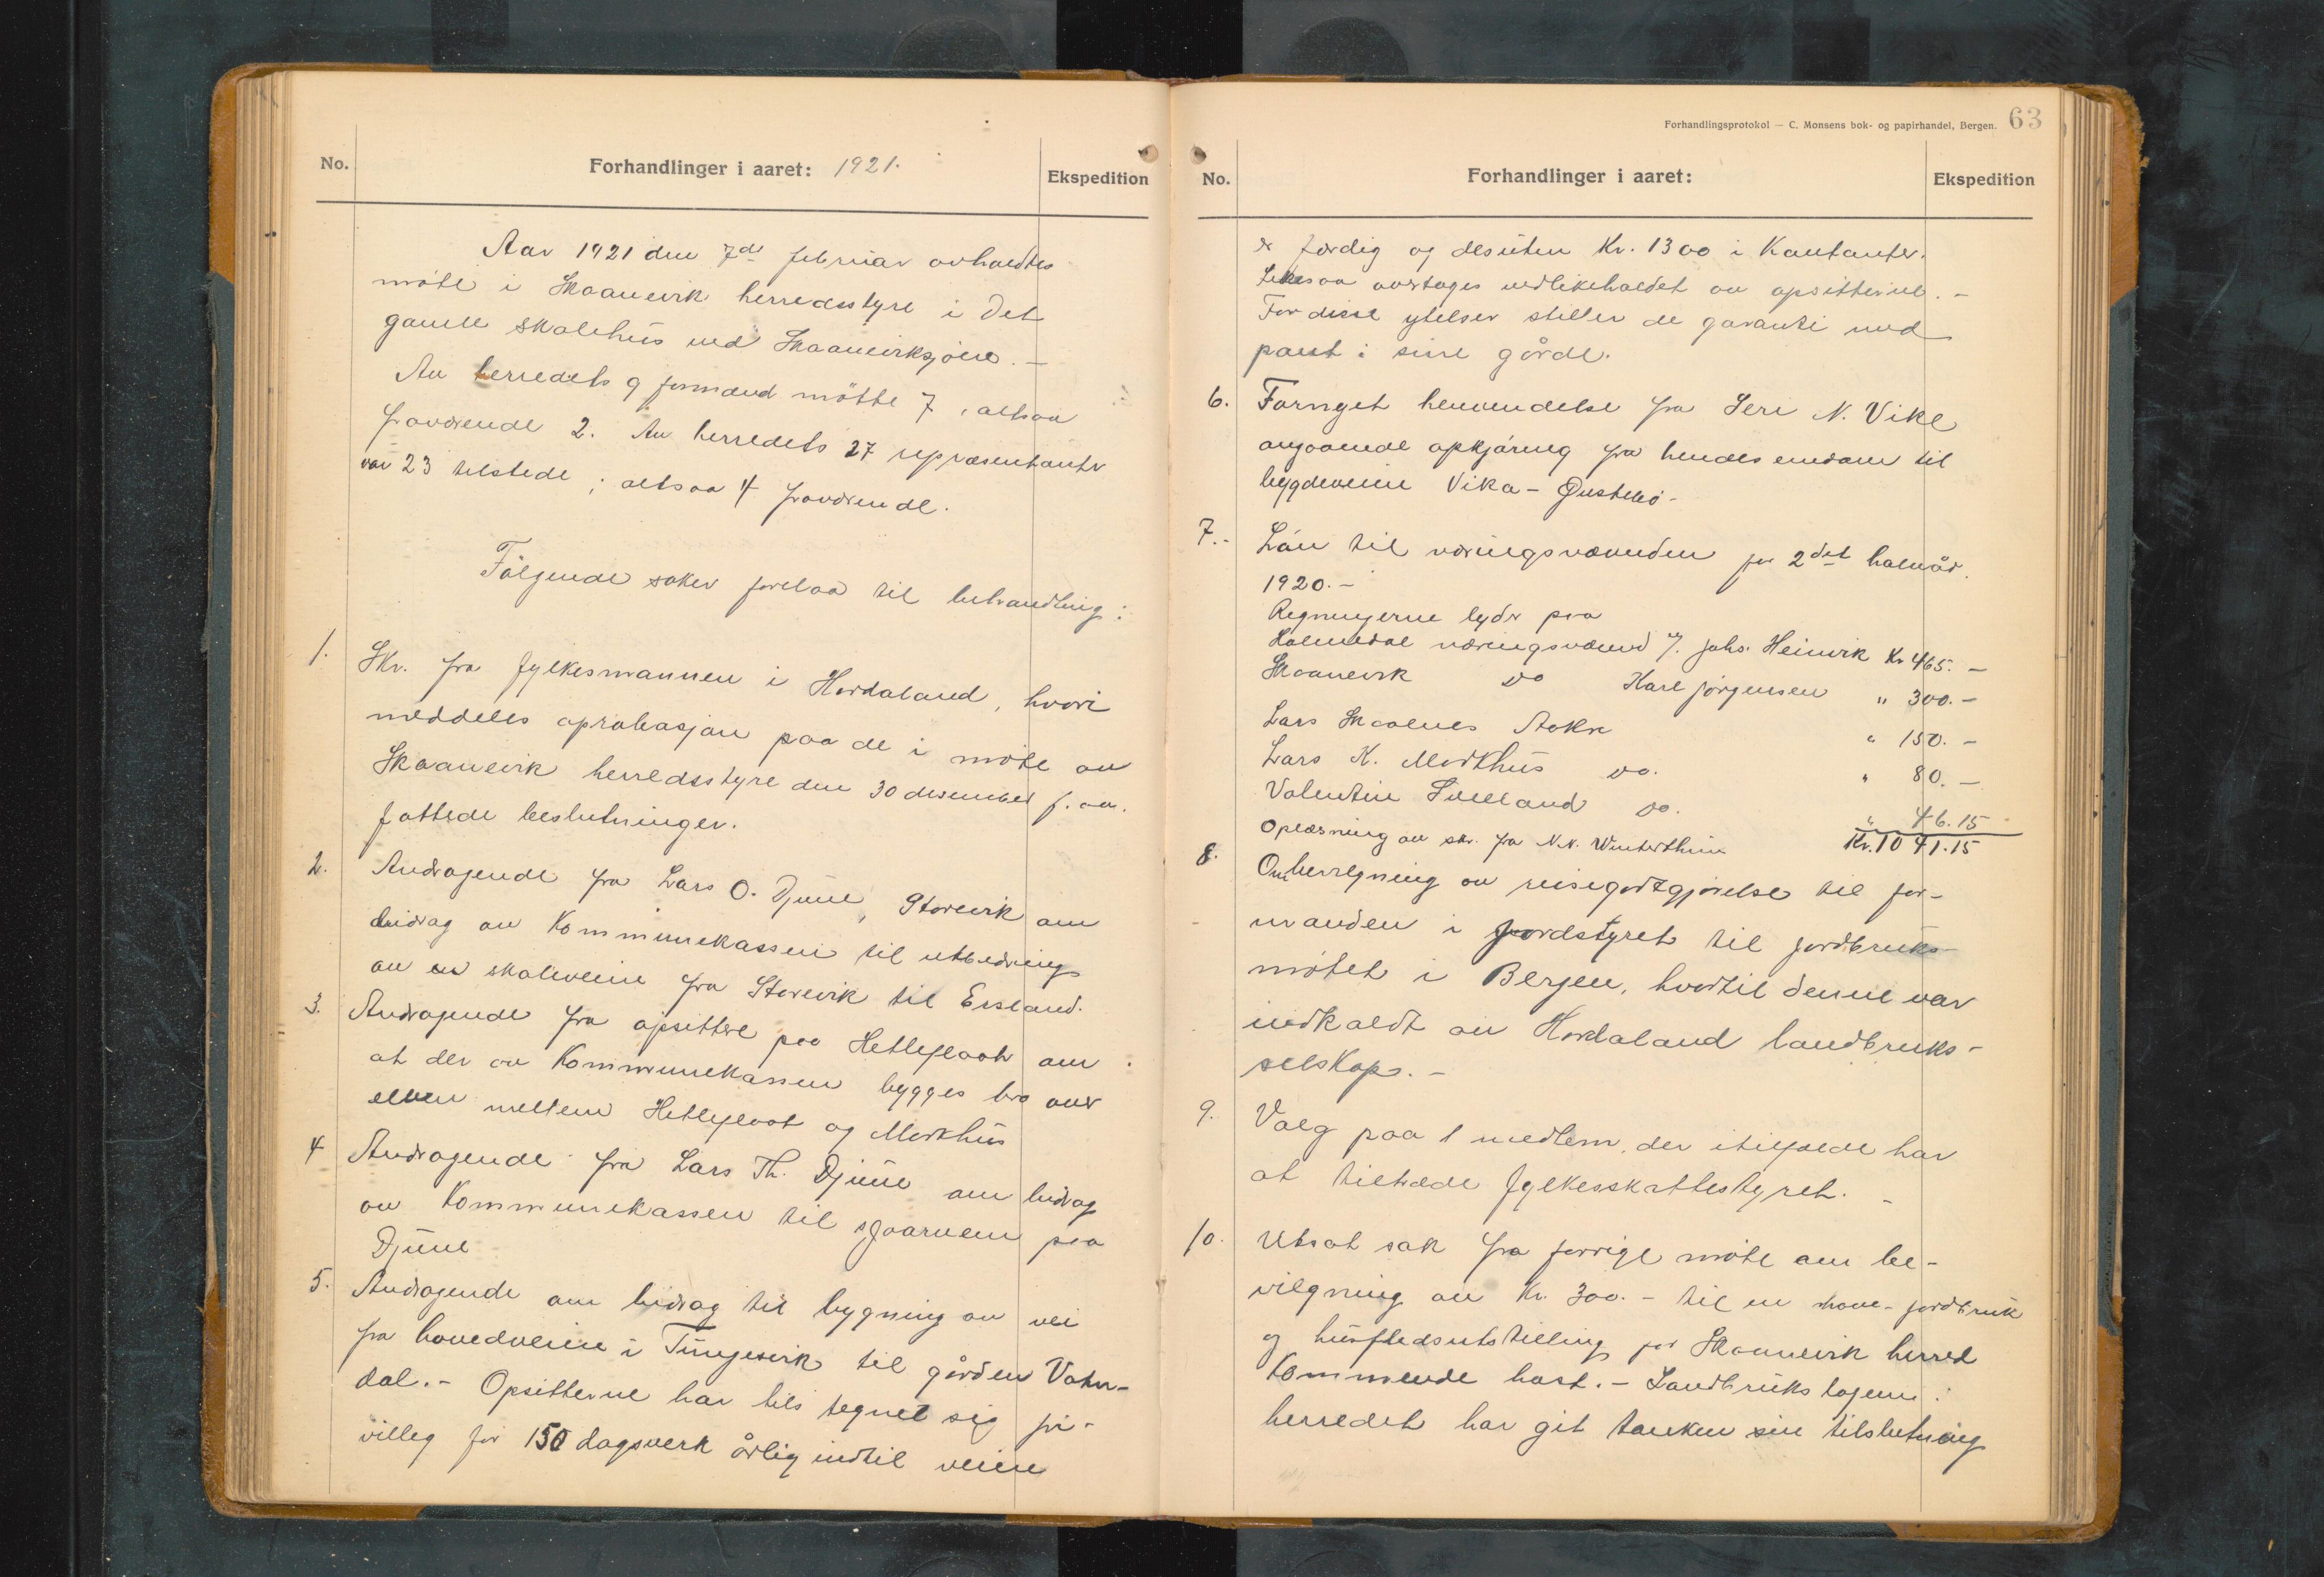 No.
Forhandlinger i aaret: 1921.
Ekspedition
Aar 1921 den 7de februar avholdtes
møte i Skaanevik herredsstyre i det
gamle skolehus ved Skaaneviksjøen.-
Av herredets 9 formænd møtte 7, altsaa
fraværende 2. Av herredets 27 repræsentanter
var 23 tilstede; altsaa 4 fraværende.
Følgende saker forelaa til behandling:
1. Skr. fra fylkesmannen i Hordaland, hvori
meddeles aprobasjon paa de i møte av
Skaanevik herredsstyre den 30 desember f. aa.
fattede beslutninger.
2. Andragende fra Lars O. Djune, Storevik om
bidrag av Kommunekassen til utbedring
av en skolevein fra Storevik til Ersland.
3. Andragende fra opsittere paa Hetleflaat om
at der av Kommunekassen bygges bro over
elven mellem Hetleflaat og Markhus
4 Andragende fra Lars Th. Djune om bidrag
av Kommunekassen til gaarveien paa
Djune
5. Andragende om bidrag til bygning av vei
fra hovedveien i Tungesvik til gården Vater-
dal.- Opsitterne har tils tegnet sig fri-
villeg for 150 dagsverk årlig indtil veien
Forhandlingsprotokol — C. Monsens bok- og papirhandel, Bergen. 63
No.
Forhandlinger i aaret:
Ekspedition
er færdig og desuten Kr. 1300 i Kontanter.
Likesaa overtages vedlikeholdet av opsitterne.-
For disse ytelser stiller de garanti med
pant i sine gårde.
6. Fornyet henvendelse fra Seri N. Vike
angaaende opkjøring fra hendes eiendom til
bygdeveien Vika - Østebø-
7.- Lån til næringsnævnden for 2det halvår
1920.-
Regningerne lyder paa
Holmedal næringsnævnd v/. Johs. Heinvik Kr 465.-
Skaanevik do Karl Jørgensen " 300.-
Lars Milnes Aakre " 150.-
Lars K. Markhus do. " 80.-
Valentin Sæland do. " 46.15
Oplæsning av skr. fra N.N. Kr. 1041.15
8. Omberegning av reisegodtgjørelse til for-
manden i jordstyret til jordbruks-
møtet i Bergen, hvortil denne var
indkaldt av Hordaland landbruks-
selskap.-
9. Valg paa 1 medlem, der itilfælde har
at tiltræde fylkesskattestyret.-
10. Utsat sak fra forrige møte om be-
vilgning av Kr. 300.- til en have- jordbruk
og husflidsutstilling for Skaanevik herred
Kommende høst.- Landbrukslagene i
herredet har git tanken sin tilslutning